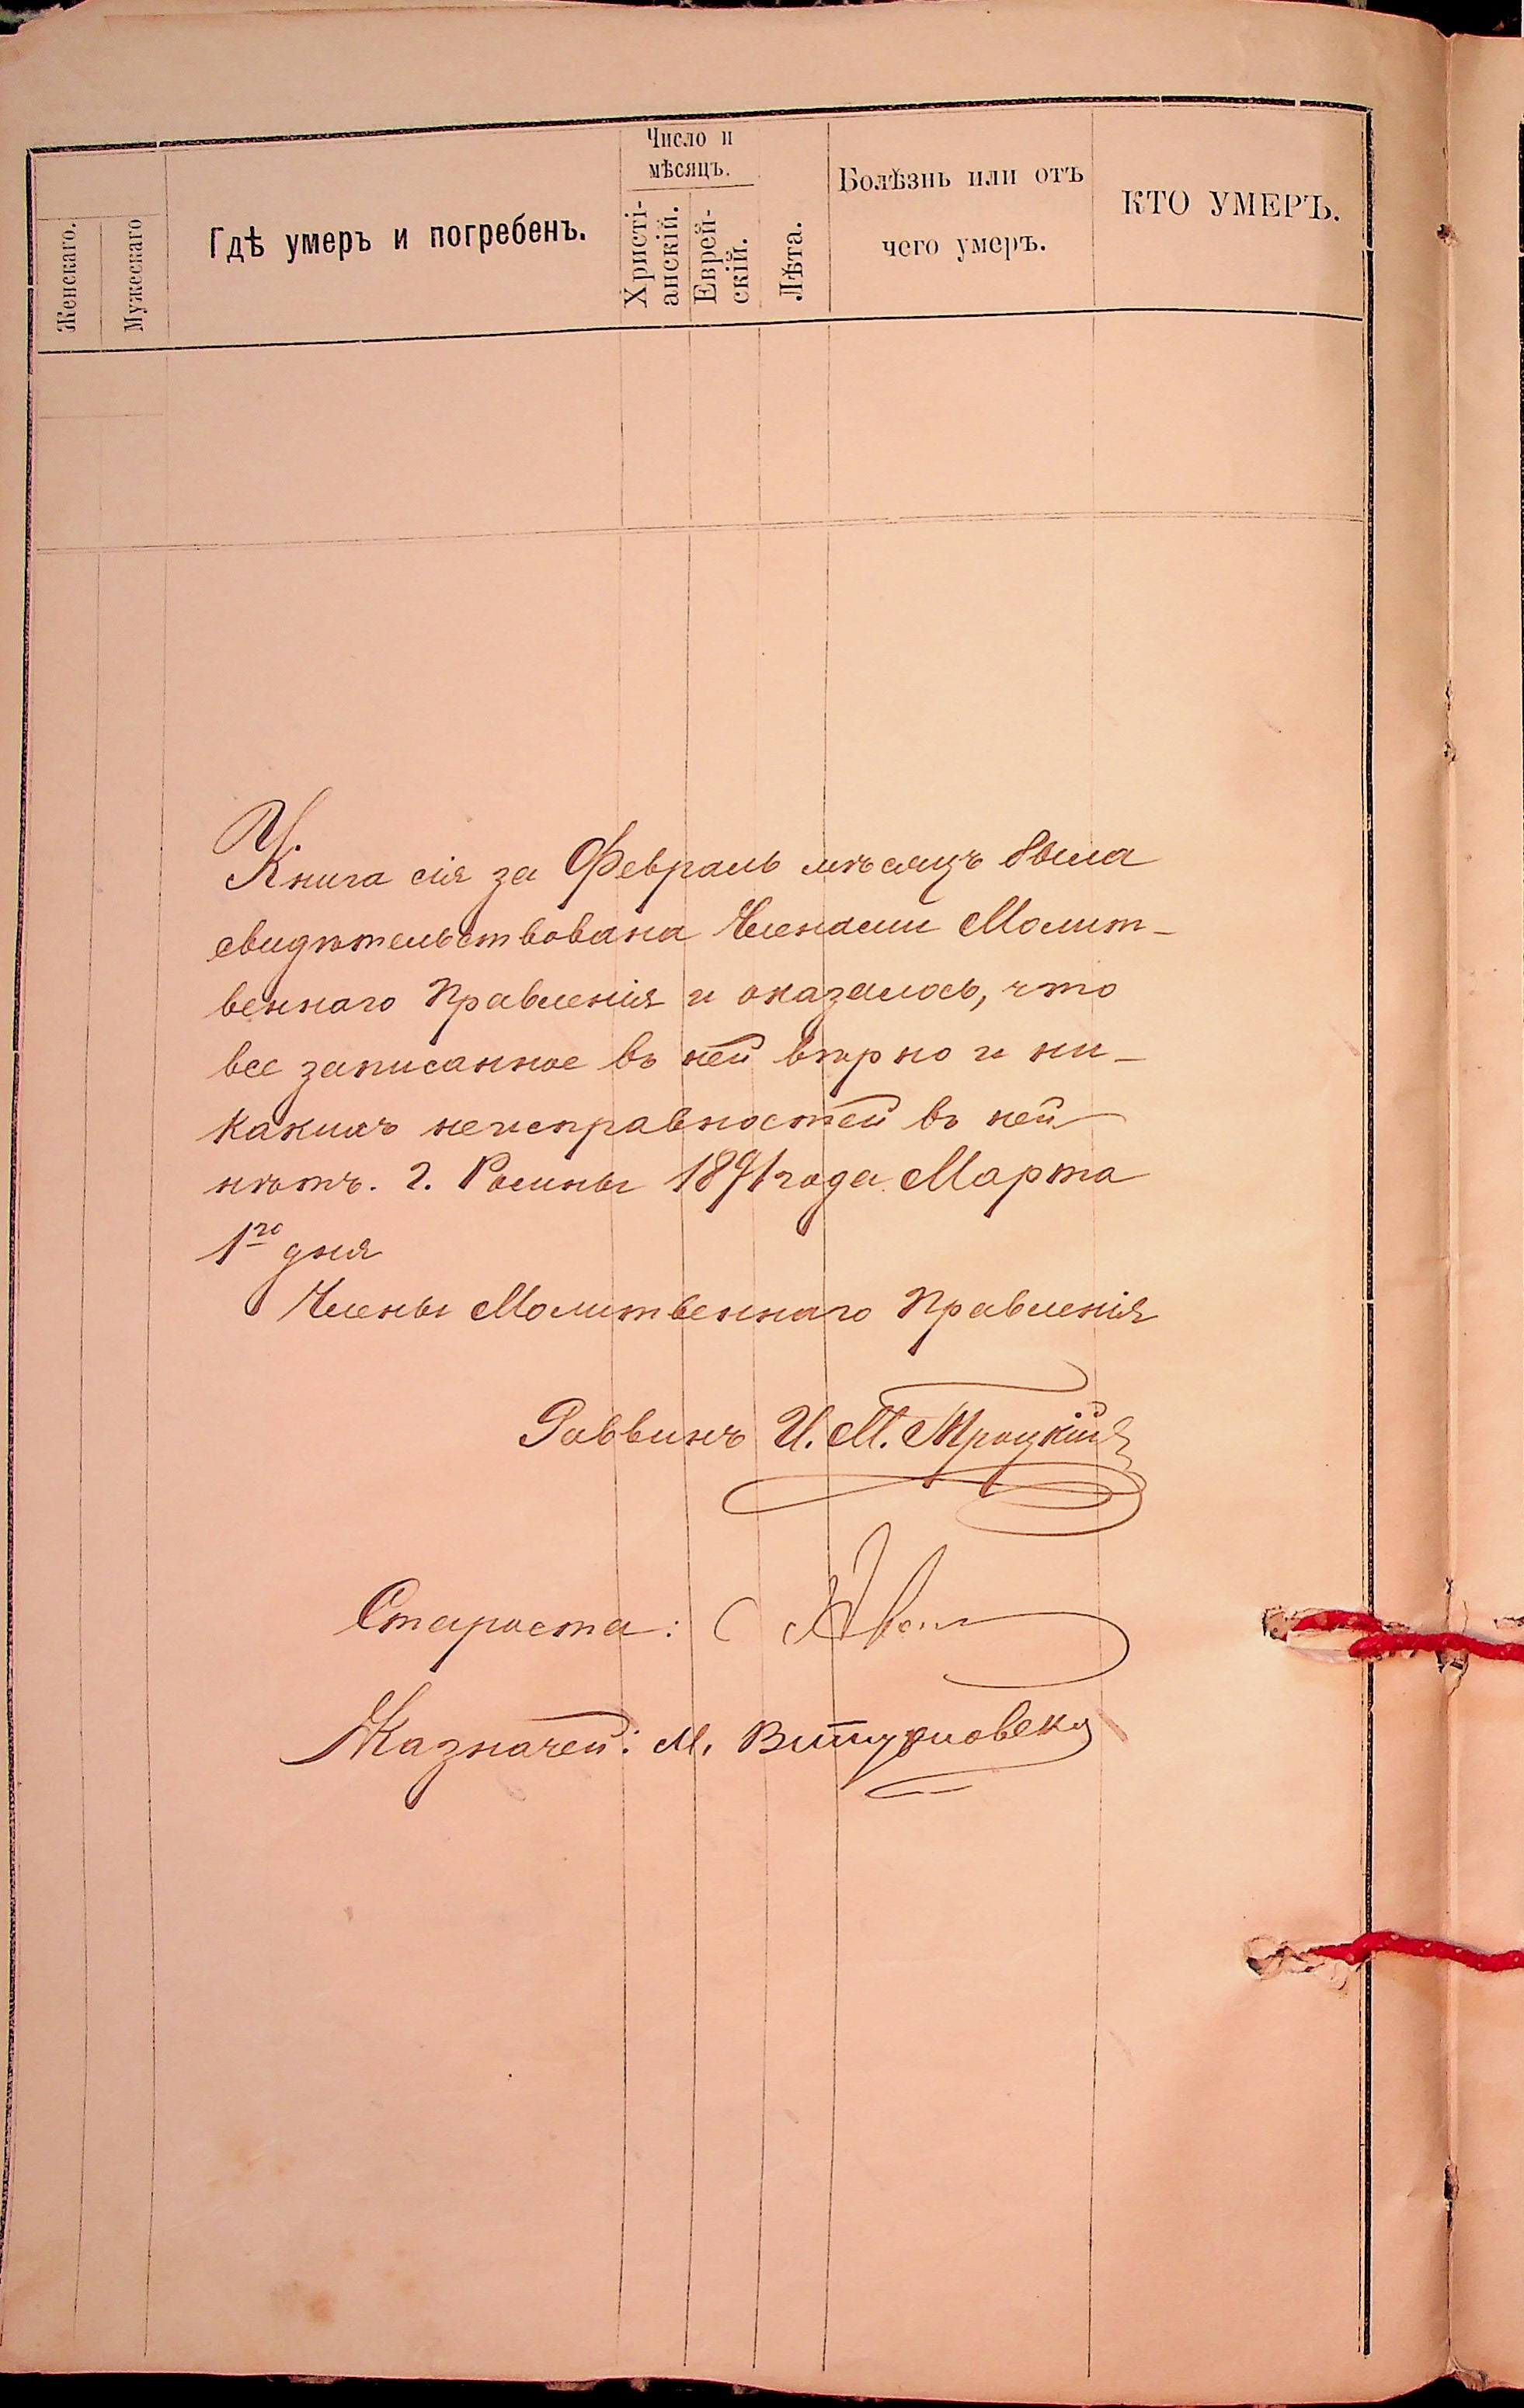 Женскаго.
Мужескаго
Гдѣ умеръ и погребенъ.
Число и
мѣсяцъ.
Христі-
анскій.
Еврей-
скій.
Лѣта.
Болѣзнь или отъ
чего умеръ.
КТО УМЕРЪ.
Книга сія за Февраль мѣсяцъ была
свидѣтельствована Членами Молит-
веннаго Правленія и оказалось, что
все записанное въ ней вѣрно и ни-
какихъ неисправностей въ ней
нѣтъ. Г. Ромны 1891 года Марта
1го дня
Члены Молитвеннаго Правленія
Раввинъ И. М. Троцкій
Староста:
Казначей: М.